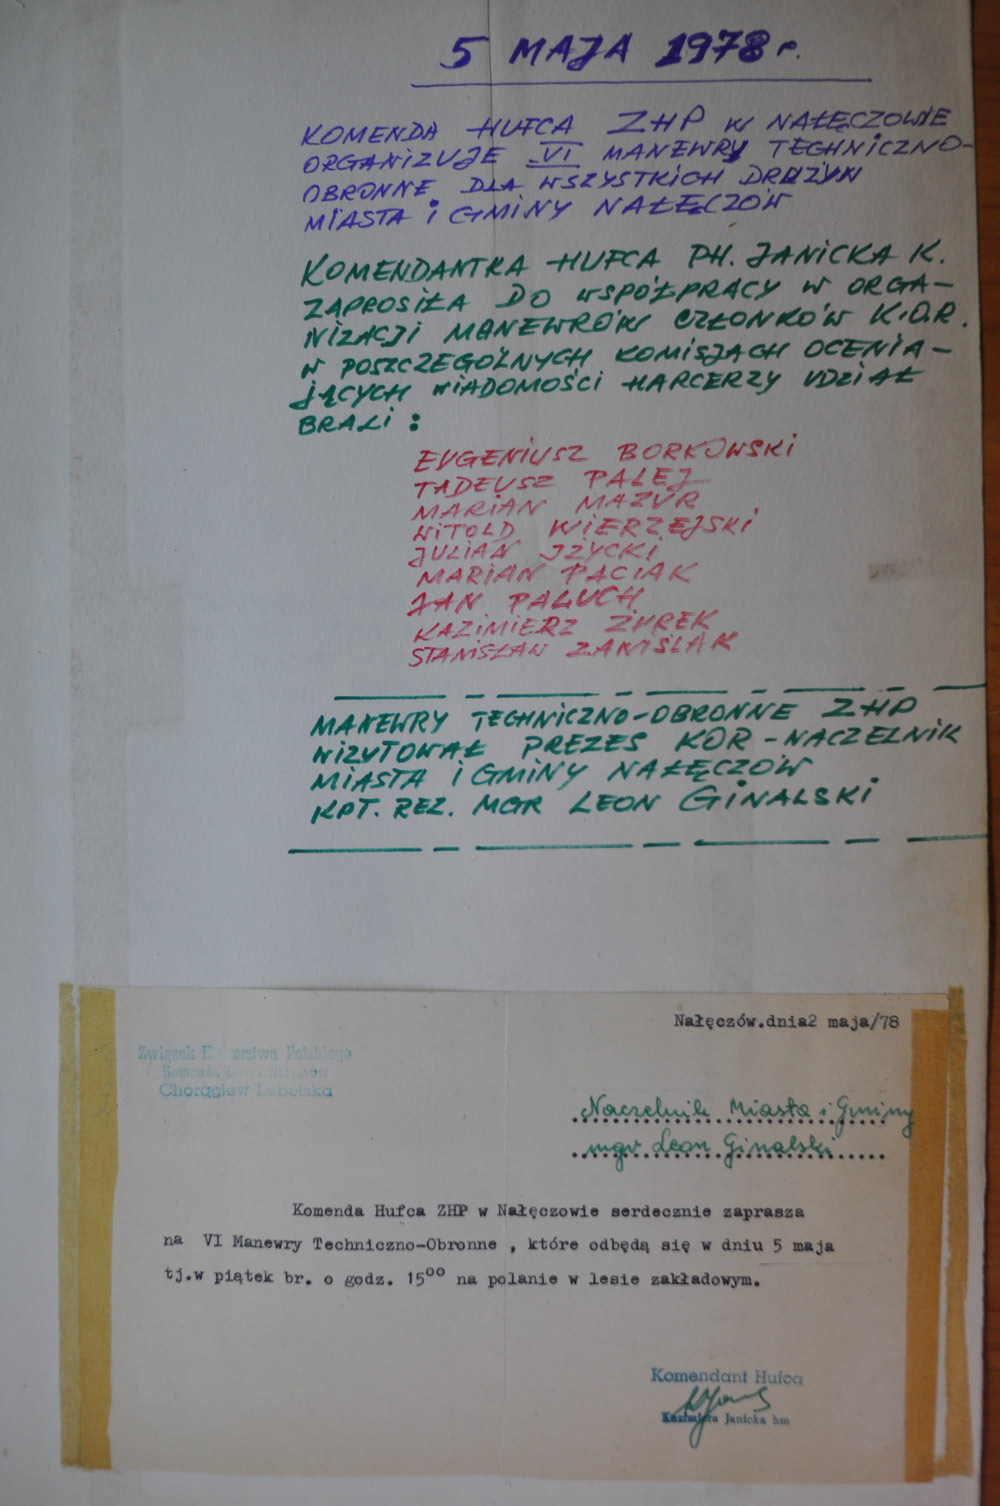 5 MAJA 1978 r.
KOMENDA HUFCA ZHP W NAŁĘCZOWIE
ORGANIZUJE VI MANEWRY TECHNICZNO-
OBRONNE DLA WSZYSTKICH DRUŻYN
MIASTA i GMINY NAŁĘCZÓW
KOMENDANTKA HUFCA PH. JANICKA K.
ZAPROSIŁA DO WSPÓŁPRACY W ORGA-
NIZACJI MANEWRÓW CZŁONKÓW K.O.R.
W POSZCZEGÓLNYCH KOMISJACH OCENIA-
JĄCYCH WIADOMOŚCI HARCERZY UDZIAŁ
BRALI :
EUGENIUSZ BORKOWSKI
TADEUSZ PALEJ
MARIAN MAZUR
WITOLD WIERZEJSKI
JULIAN IŻYCKI
MARIAN PACIAK
JAN PALUCH
KAZIMIERZ ŻUREK
STANISŁAW ZAWIŚLAK
MANEWRY TECHNICZNO-OBRONNE ZHP
WIZYTOWAŁ PREZES KOR - NACZELNIK
MIASTA i GMINY NAŁĘCZÓW
KPT. REZ. MGR LEON GINALSKI
Nałęczów.dnia2 maja/78
Związek Harcerstwa Polskiego
Komenda
Chorągiew Lubelska
Naczelnik Miasta i Gminy
mgr Leon Ginalski
Komenda Hufca ZHP w Nałęczowie serdecznie zaprasza
na VI Manewry Techniczno-Obronne , które odbędą się w dniu 5 maja
tj.w piątek br. o godz. 15⁰⁰ na polanie w lesie zakładowym.
Komendant Hufca
Kazimiera Janicka hm